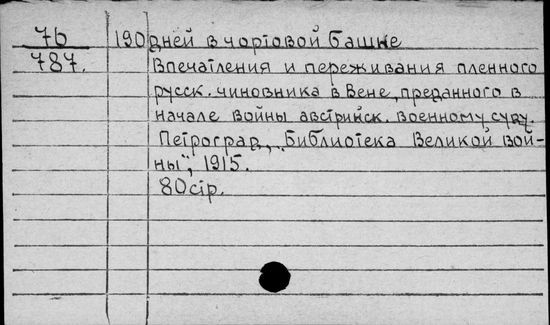 76 190 дней в чортовой башне
787. Впечатления и переживания пленного
русск. чиновника в Вене, преданного в
начале войны австрийск. военному суду.
Петроград, "Библиотека Великой вой-
ны", 1915.
80стр.